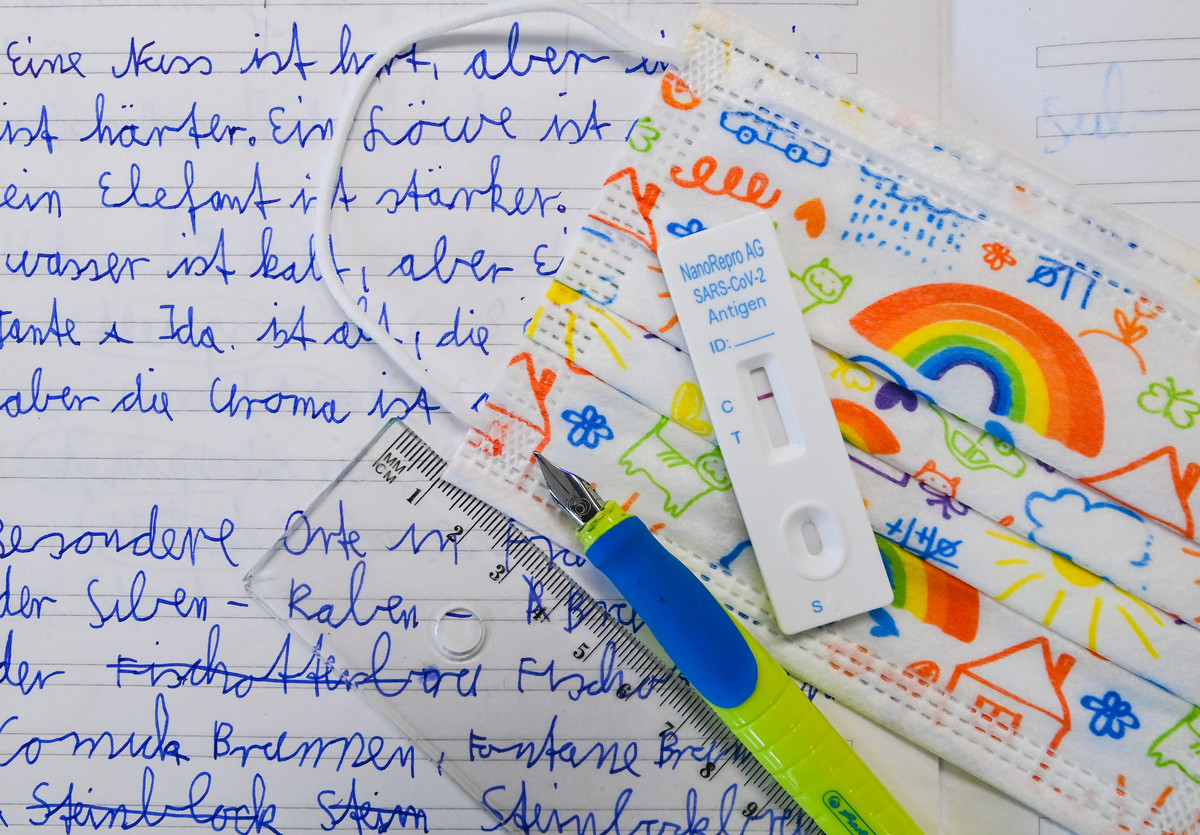 Eine Nuss ist hart, aber
ist härter. Ein Löwe ist
ein Elefant ist stärker.
wasser ist kalt, aber Ei
Tante Ida. ist alt, die
aber die Uroma ist
Besondere Orte in
der Silben - Raben -
der Fischotterbau
Comuck Brunnen, Fontane
Steinblock Steim
NanoRepro AG
SARS-CoV-2
Antigen
ID:
C
T
S
MM
CM
1
2
3
4
5
6
7
8
9